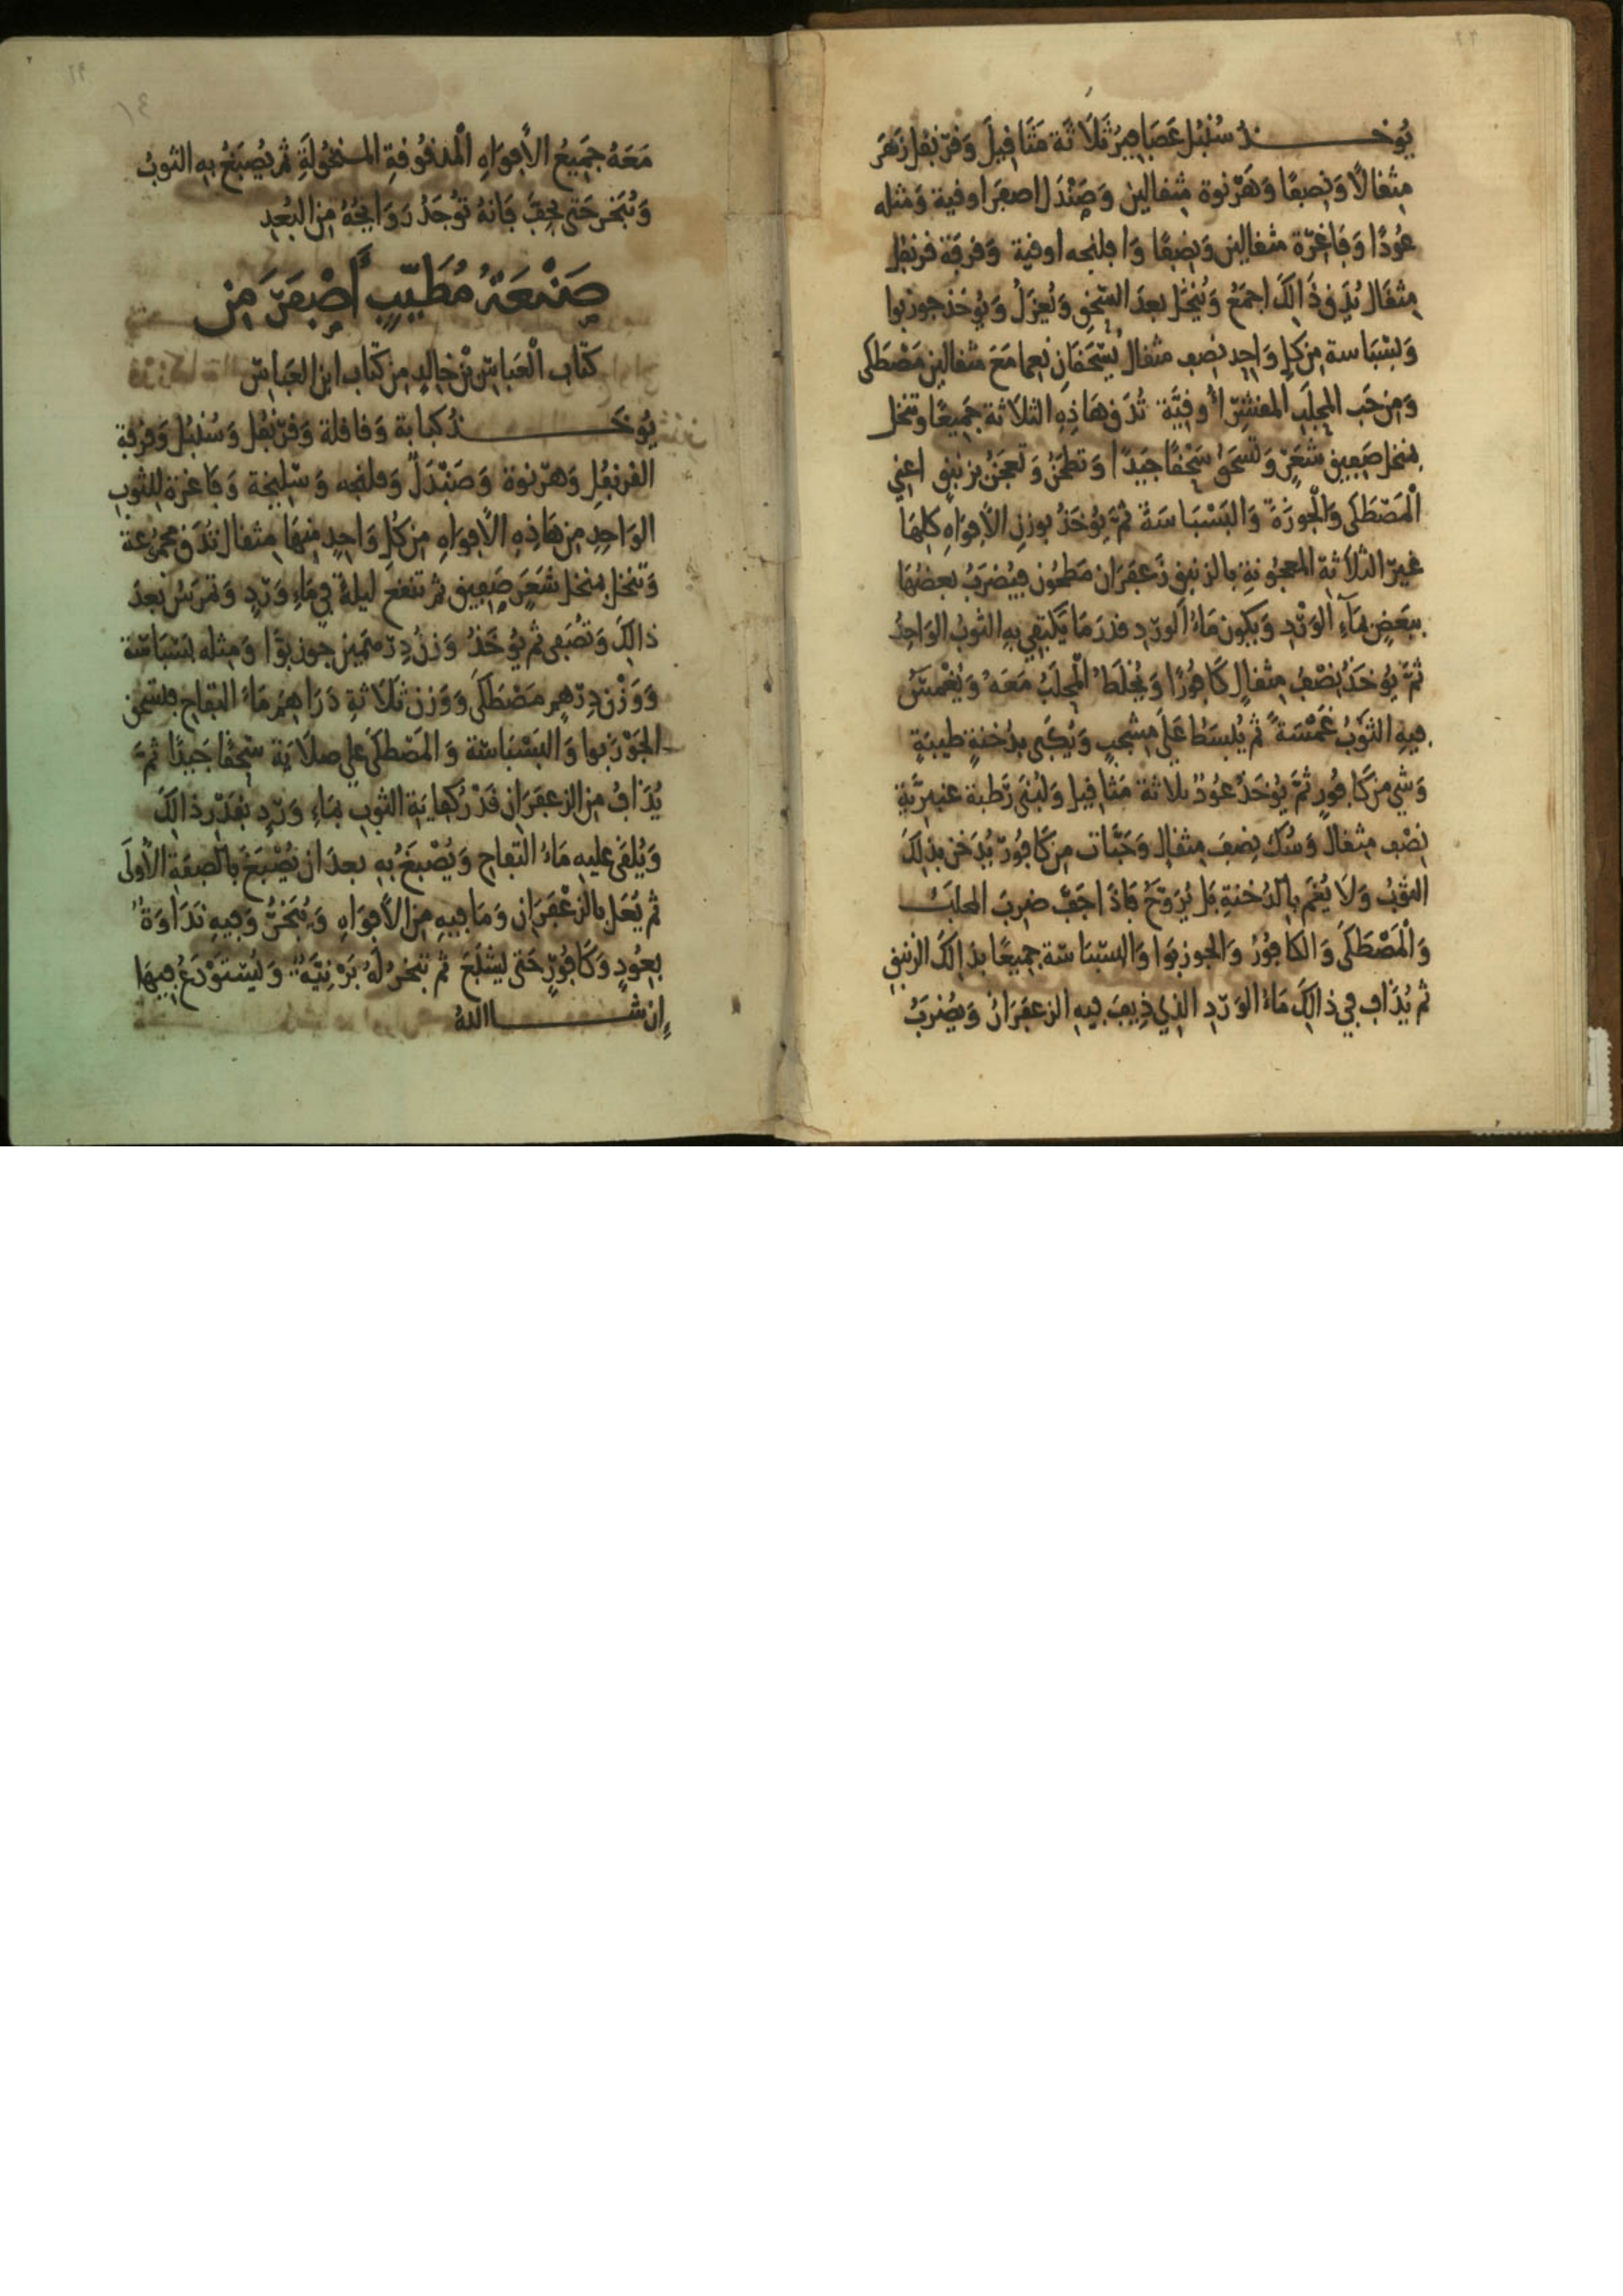 يُوخــــذُ سُنْبُل عَصَافِيرُ ثَلَاثَة مَثَاقِيلَ وَقَرَنْفُل زَهَرَ
مِثقالاً وَنِصفًا وَهَرْنوة مِثقالين وَصَنْدَل اصفَر اوقية وَمثله
عُودًا وَفَاغِرَة مثقالين وَنِصفًا وَافلنجه اوقية وَقرفَة قرنفل
مِثقَال يُدَق ذَالِكَ اجمَعُ وَيُنخَل بعدَ السَّحْقِ وَيُعزَلُ وَيُوخَذ جوزبوا
وَبَسْبَاسة مِن كلِ وَاحِد نِصف مثقال يُسْحَقَانِ نِعما مَعَ مثقالين مَصْطَكَى
وَمِن حَب المحلَبِ المقشر أُوقِيَّة تُدَق هَاذِهِ الثلَاثة جَمِيعًا وتنخل
بمنخل صَفِيق شَعَرٍ وَتُسحَقُ سَحْقًا جَيدًا وَتطحَنُ وَتعجَنُ بزنبق اعني
الْمَصْطَكَى وَالْجَوزَةَ وَالبَسْبَاسَةَ ثُمَّ يُوْخَذُ بوزن الأفوَاهِ كلِهَا
غيرَ الثلاثة المعجُونةِ بالزنبق زَعفَرَان مَطحُون فيُضرَبُ بعضُهَا
ببَعَضٍ بمَآءِ الوَرْدِ وَيكون مَاءُ الورْدِ قدرَ مَا يَكتفِي بِهِ الثوبُ الوَاحِدُ
ثُمَّ يُوخَذُ نِصْفُ مِثقالٍ كَافُورًا وَيُخلَطُ الْمحلَبُ مَعَهُ وَيُغْمَسُ
فيهِ الثوبُ غَمْسَةً ثم يُبسَطُ عَلَى مِشْجبٍ وَيُكبَى بدُخنةٍ طيبَةٍ
وَشَي مِن كَافُورٍ ثُمَّ يُوْخَذُ عُودٌ ثلاثة مَثاقِيل وَلُبْنَى رَطبة عنبريَّةٍ
نِصْف مِثقال وَسُك نِصفَ مِثقال وَحَبَّات مِن كَافُورٍ يُدَخن بذلِكَ
الثوبُ وَلَا يُغَم بالدُخنةِ بَل يُرَوَّحُ فَاذَا جَفَّ ضرِبَ المحلَبُ
وَالْمَصْطَكَى وَالكَافُورُ وَالجوزبَوا وَالبسْبَاسَة جمِيعًا بذَالِكَ الزنبق
ثم يُذَاف فِي ذالِكَ مَاءُ الوَرْدِ الذِي ذِيفَ فِيهِ الزعفَرَانُ وَيُضْرَبُ
مَعَهُ جَمِيعُ الأَفوَاهِ الْمدقُوقةِ المنخُولَةِ ثم يُصبَغُ بهِ الثوبُ
وَيُبَخر حَتى يجِفَّ فَانهُ تُوجَدُ رَوَايحُهُ مِن البُعدِ
صَنْعَةُ مُطَيِّبٍ أَصْفَرَ مِن
كتاب الْعَبَاسِ بْن خالِدٍ مِن كتاب ابن العَبَاس
يُوخَــــذُ كبابة وَقاقلة وَقرَنْفُل وَسُنبُل وَقرْفة
القرنفُل وَهَرْنوة وَصَنْدَلٌ وَفلنجه وَسَلِيخة وَفَاغرة للثوبِ
الوَاحِدِ مِن هَاذِهِ الأَفوَاهِ مِن كُل وَاحِدٍ مِنهَا مِثقال تُدَق مجمُوعة
وَتنخل بمنخل شَعَرٍ صَفِيق ثم تنقع ليلةً فِي مَاءِ وَرْدٍ وَتمرَسُ بعدَ
ذالِكَ وَتُصَفى ثم يُوخَذُ وَزنُ دِرْهَمَين جوزبوَا وَمِثله بَسْبَاسَة
وَوَزْن دِرْهمٍ مَصْطَكَى وَوَزن ثلَاثةِ دَرَاهِمَ مَاءُ التفاح فتسحق
الجَوْزَبوا وَالبَسْبَاسَة وَالمَصْطَكَى على صلَايَة سَحْقًا جَيدًا ثُمَّ
يُذَافُ مِن الزعفَرَانِ قَدْرُ كفَايَةِ الثوبِ بمَاءِ وَرْدٍ بقَدْرِ ذالِكَ
وَيُلقَى عليهِ مَاءُ التفاحِ وَيُصْبَغُ بهِ بعدَ ان يُصْبَغَ بالصِفَةِ الأولَى
ثم يُعَل بالزعْفَرَانِ وَمَا فِيهِ مِن الأَفوَاهِ وَيُبَخَّرُ وَفِيهِ نَدَاوَةٌ
بِعُودٍ وَكَافُورٍ حَتى يَشْبَعَ ثم تبَخرُ لَهُ بَرْنِيَّةٌ وَيُسْتَوْدَعُ فِيهَا
إِن شـــــا اللهُ